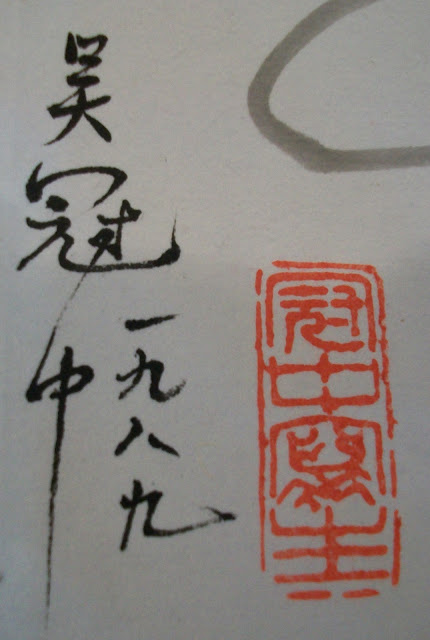 吴冠中
一九八九
冠中寫生